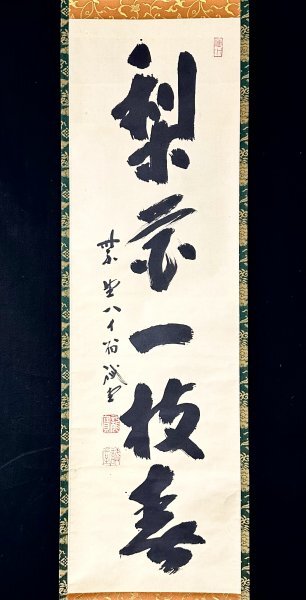 梨花一枝春
紫野八十翁誡堂